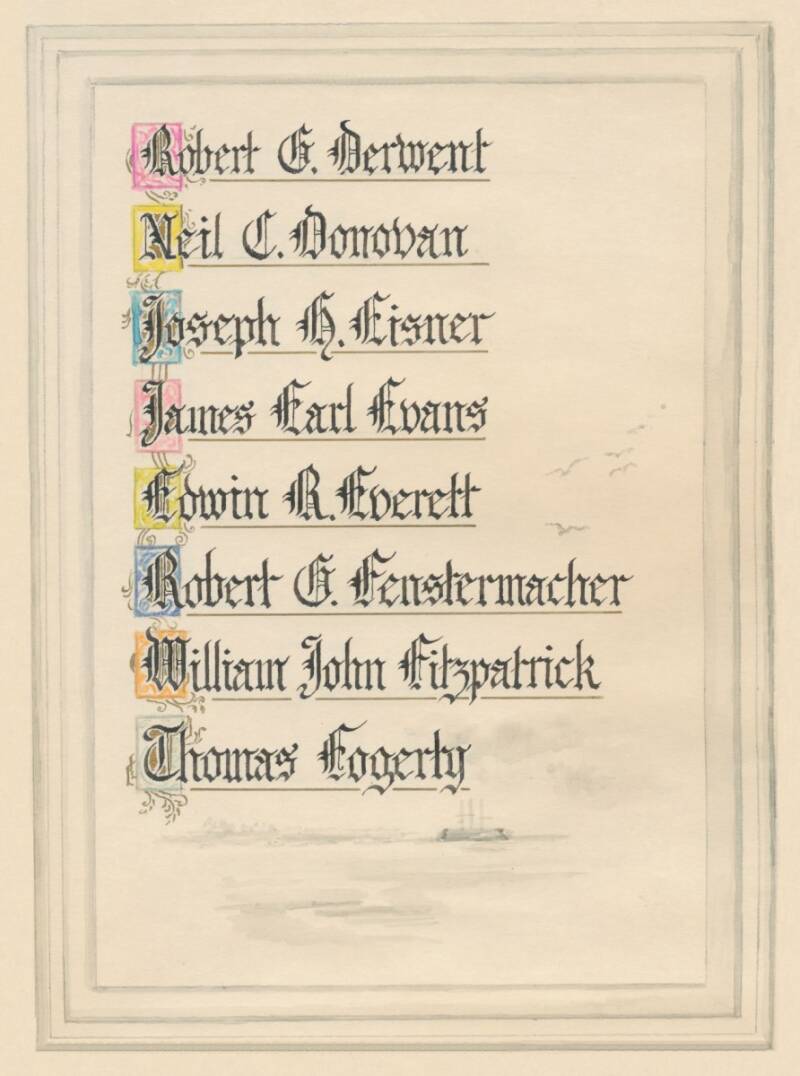 Robert G. Derwent
Neil C. Donovan
Joseph H. Eisner
James Earl Evans
Edwin R. Everett
Robert G. Fenstermacher
William John Fitzpatrick
Thomas Fogerty